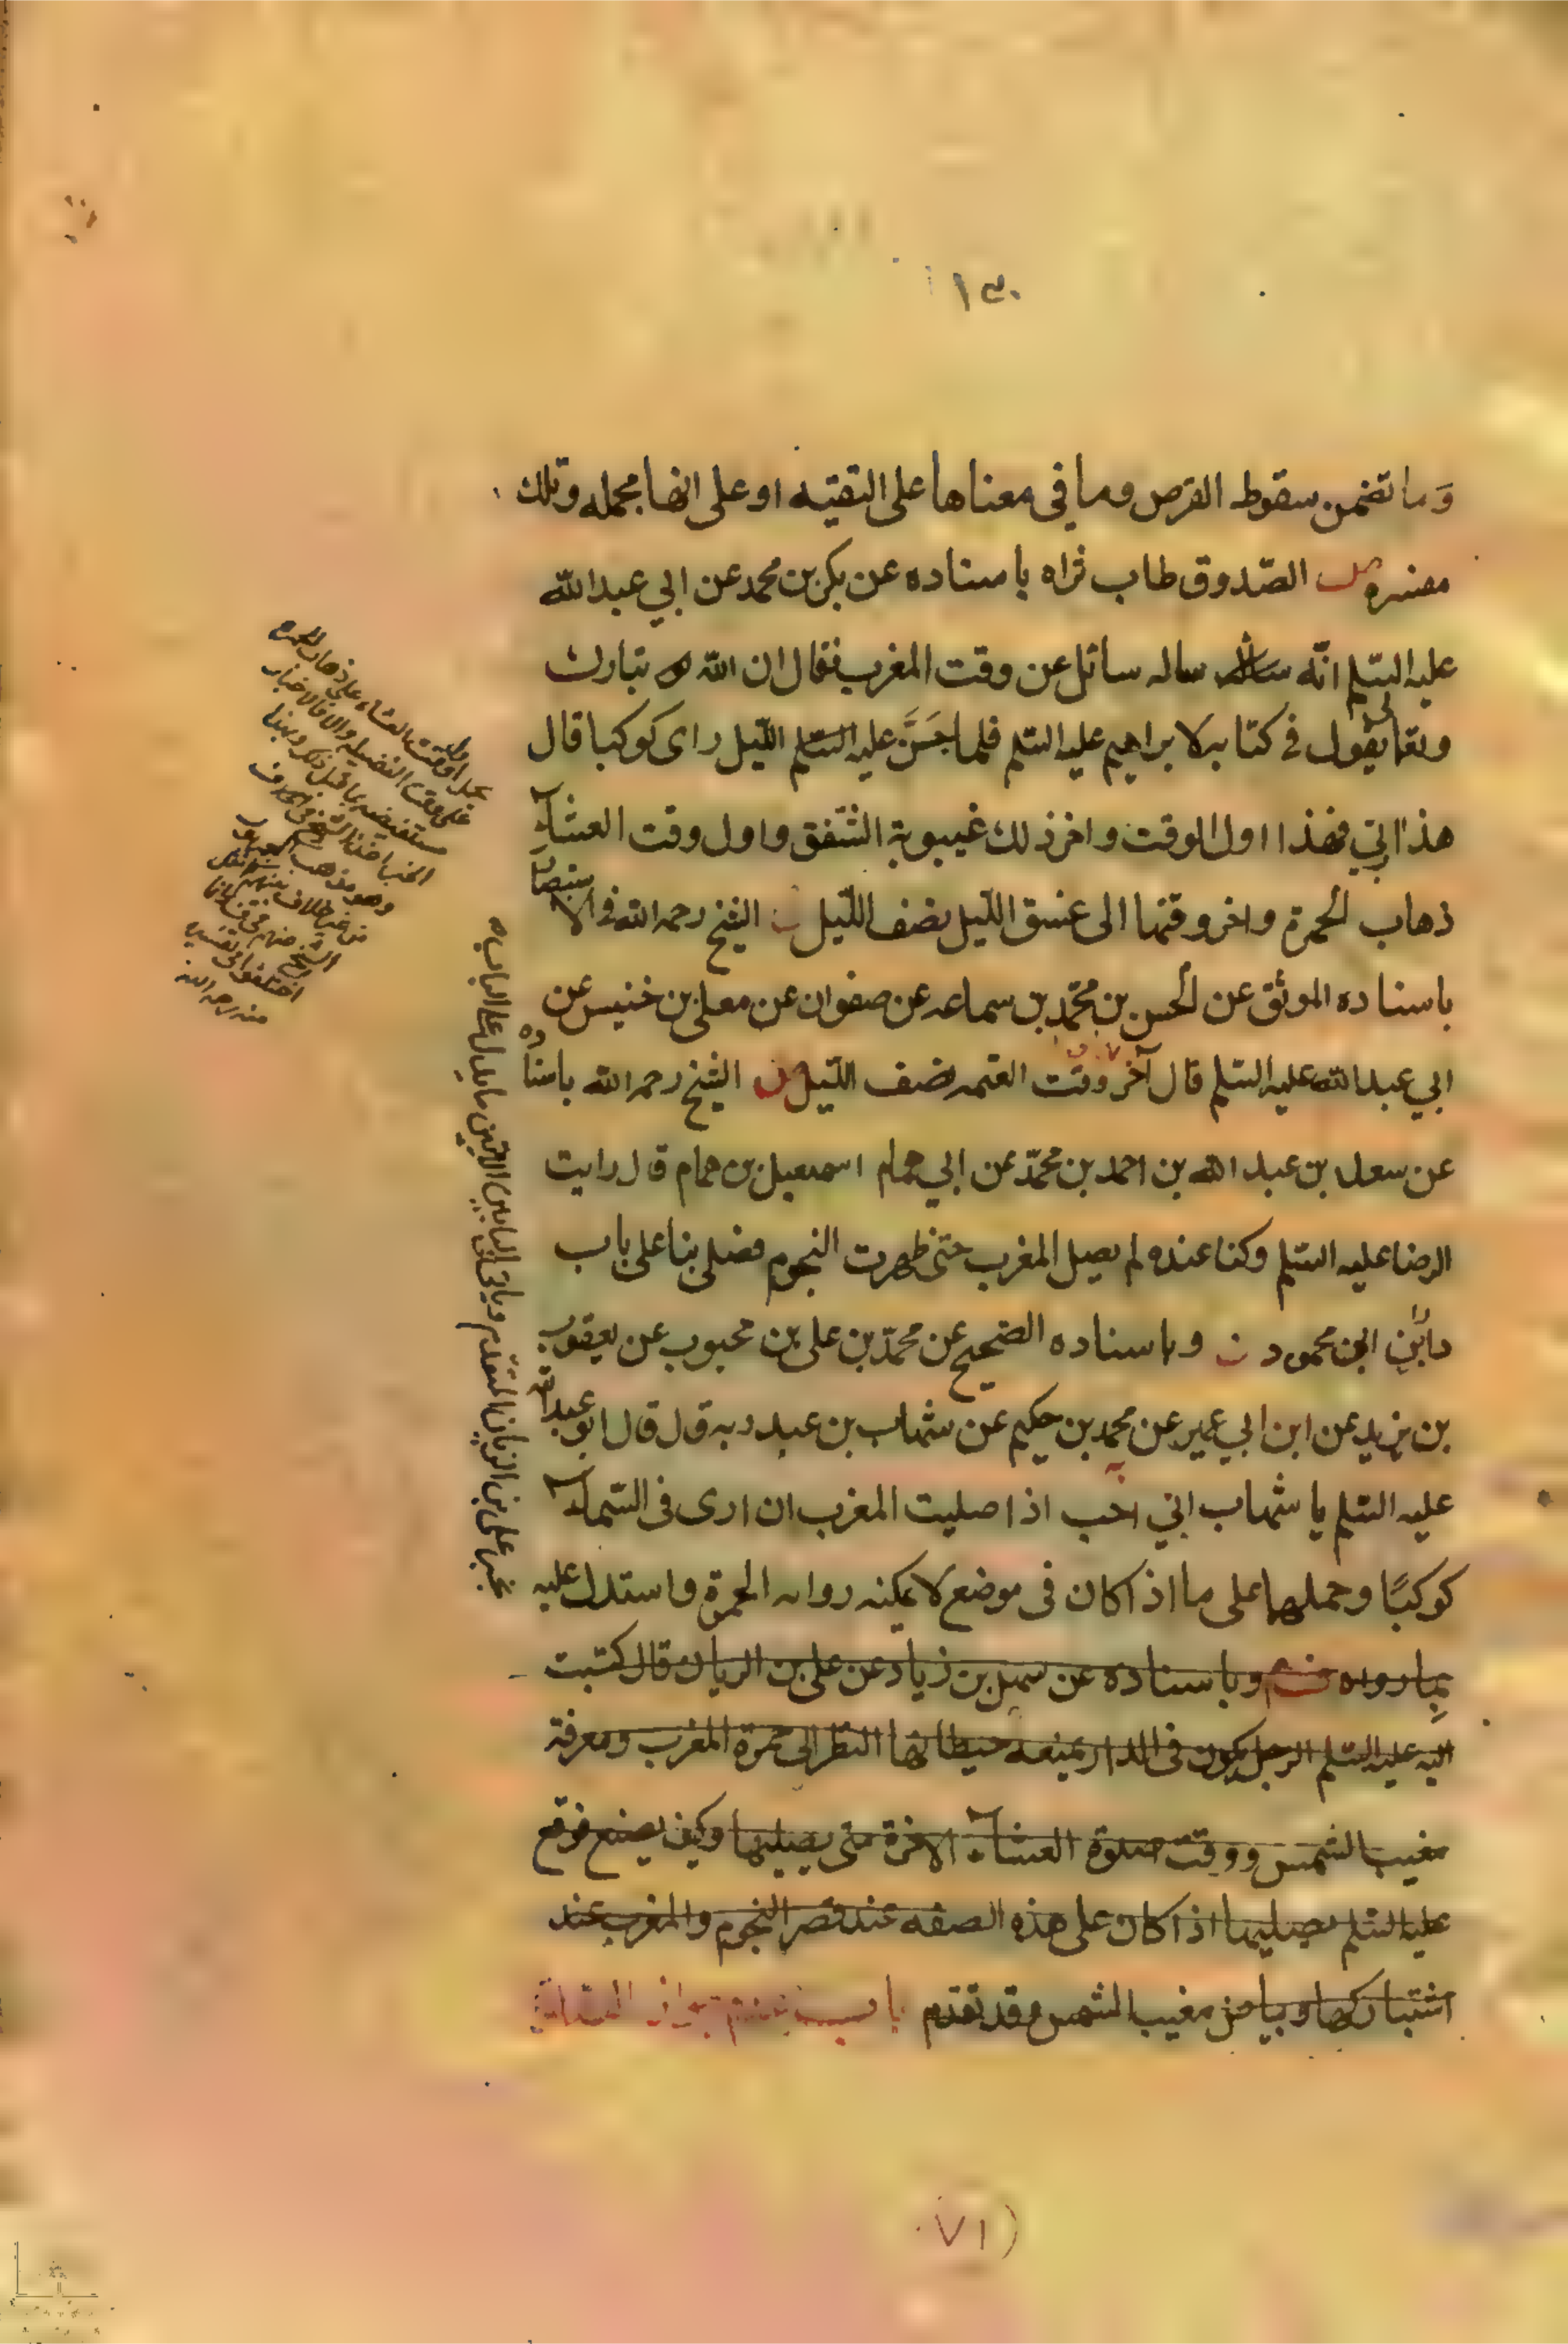 ١٣٠
وما تضمن سقوط القرص وما في معناها على التقيه او على انها مجمله وتلك
مفسره الصّدوق طاب ثراه باسناده عن بكر بن محمد عن ابي عبدالله
عليه السّلم انّه ساله سائل عن وقت المغرب فقال ان الله تبارك
وتعالى يقول في كتابه لابراهيم عليه السّلم فلما جَنَّ عليه السّلم اللّيل راى كوكبا قال
هذا ربّي فهذا اول الوقت واخر ذلك غيبوبة الشّفق واول وقت العشآء
ذهاب الحمرة واخر وقتها الى غسق اللّيل نصف اللّيل الشيخ رحمه الله في الاستبصار
باسناده الموثق عن الحسن بن محمّد بن سماعه عن صفوان عن معلى بن خنيس عن
ابي عبدالله عليه السّلم قال آخر وقت العتمه نصف اللّيل الشيخ رحمه الله باسناده
عن سعد بن عبد الله بن احمد بن محمّد عن ابي همام اسمعيل بن همام قال رايت
الرضا عليه السّلم وكنا عنده لم يصل المغرب حتى ظهرت النجوم فصلى بنا على باب
دار ابن ابي محمود وباسناده الصّحيح عن محمّد بن على بن محبوب عن يعقوب
بن يزيد عن ابن ابي عمير عن محمد بن حكيم عن شهاب بن عبد ربه قال قال ابو عبدالله
عليه السّلم يا شهاب اني احب اذا صليت المغرب ان ارى فى السّمآء
كوكبًا وحملها على ما اذا كان فى موضع لا يمكنه رواىه الحمرة واستدل عليه
بما رواه وباسناده عن سهل بن زياد عن على بن الريان قال كتبت
اليه عليه السّلم الرجل يكون فى الدار يمنعه حيطانها النظر الى حمرة المغرب ومعرفة
مغيب الشمس ووقت صلوة العشآء الاخرة متى يصليها وكيف يصنع فوقع
عليه السّلم يصليها اذا كان على هذه الصفه عند قصر النجوم والمغرب عند
اشتباكها وبياض مغيب الشمس وقد تقدم باب
على وقت الفضيله والا فالاخبار
وهو مذهب
من غير خلاف بينهم
اختلفوا فى تفسيره
منه رحمه الله
بخبر على بن الريان المتقدم وياتى فى البابين الاتيين ما يدل على الباب
٧١